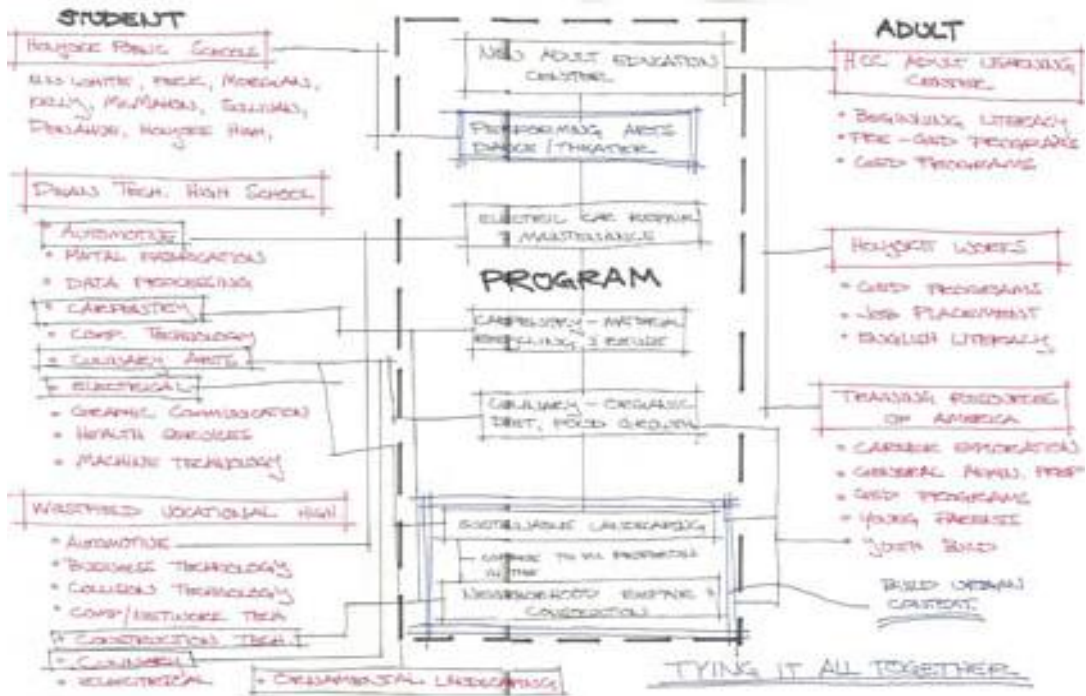 STUDENT
HOLYOKE PUBLIC SCHOOLS
WHITE, PECK, MORGAN,
KELLY, McMAHON, SULLIVAN,
DONAHUE, HOLYOKE HIGH,
DEAN TECH. HIGH SCHOOL
• AUTOMOTIVE
• METAL FABRICATION
• DATA PROCESSING
• CARPENTRY
• COMP. TECHNOLOGY
• CULINARY ARTS
• ELECTRICAL
• GRAPHIC COMMUNICATION
• HEALTH SERVICES
• MACHINE TECHNOLOGY
WESTFIELD VOCATIONAL HIGH
• AUTOMOTIVE
• BUSINESS TECHNOLOGY
• COLLISION TECHNOLOGY
• COMP/NETWORK TECH
• CONSTRUCTION TECH.
• CULINARY
• ELECTRICAL
• ORNAMENTAL LANDSCAPING
NEW ADULT EDUCATION
CENTER
PERFORMING ARTS
DANCE/THEATER
ELECTRIC CAR REPAIR
& MAINTENANCE
PROGRAM
CARPENTRY - MATERIAL
& REUSE
CULINARY - ORGANIC
DIET, FOOD GROWTH
SUSTAINABLE LANDSCAPING
IN THE
NEIGHBORHOOD REPAIR &
CONSTRUCTION
ADULT
HCC ADULT LEARNING
CENTER
• BEGINNING LITERACY
• PRE-GED PROGRAMS
• GED PROGRAMS
HOLYOKE WORKS
• GED PROGRAMS
• JOB PLACEMENT
• ENGLISH LITERACY
TRAINING RESOURCES
OF AMERICA
• CAREER EXPLORATION
• GENERAL ADMIN. PREP
• GED PROGRAMS
• YOUNG PARENTS
• YOUTH BUILD
BUILD URBAN
CONTEXT.
TYING IT ALL TOGETHER